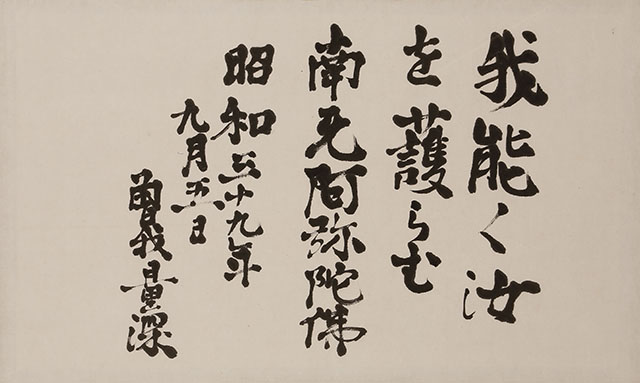 我能く汝
を護らむ
南无阿弥陀佛
昭和三十九年
九月五日
曽我量深